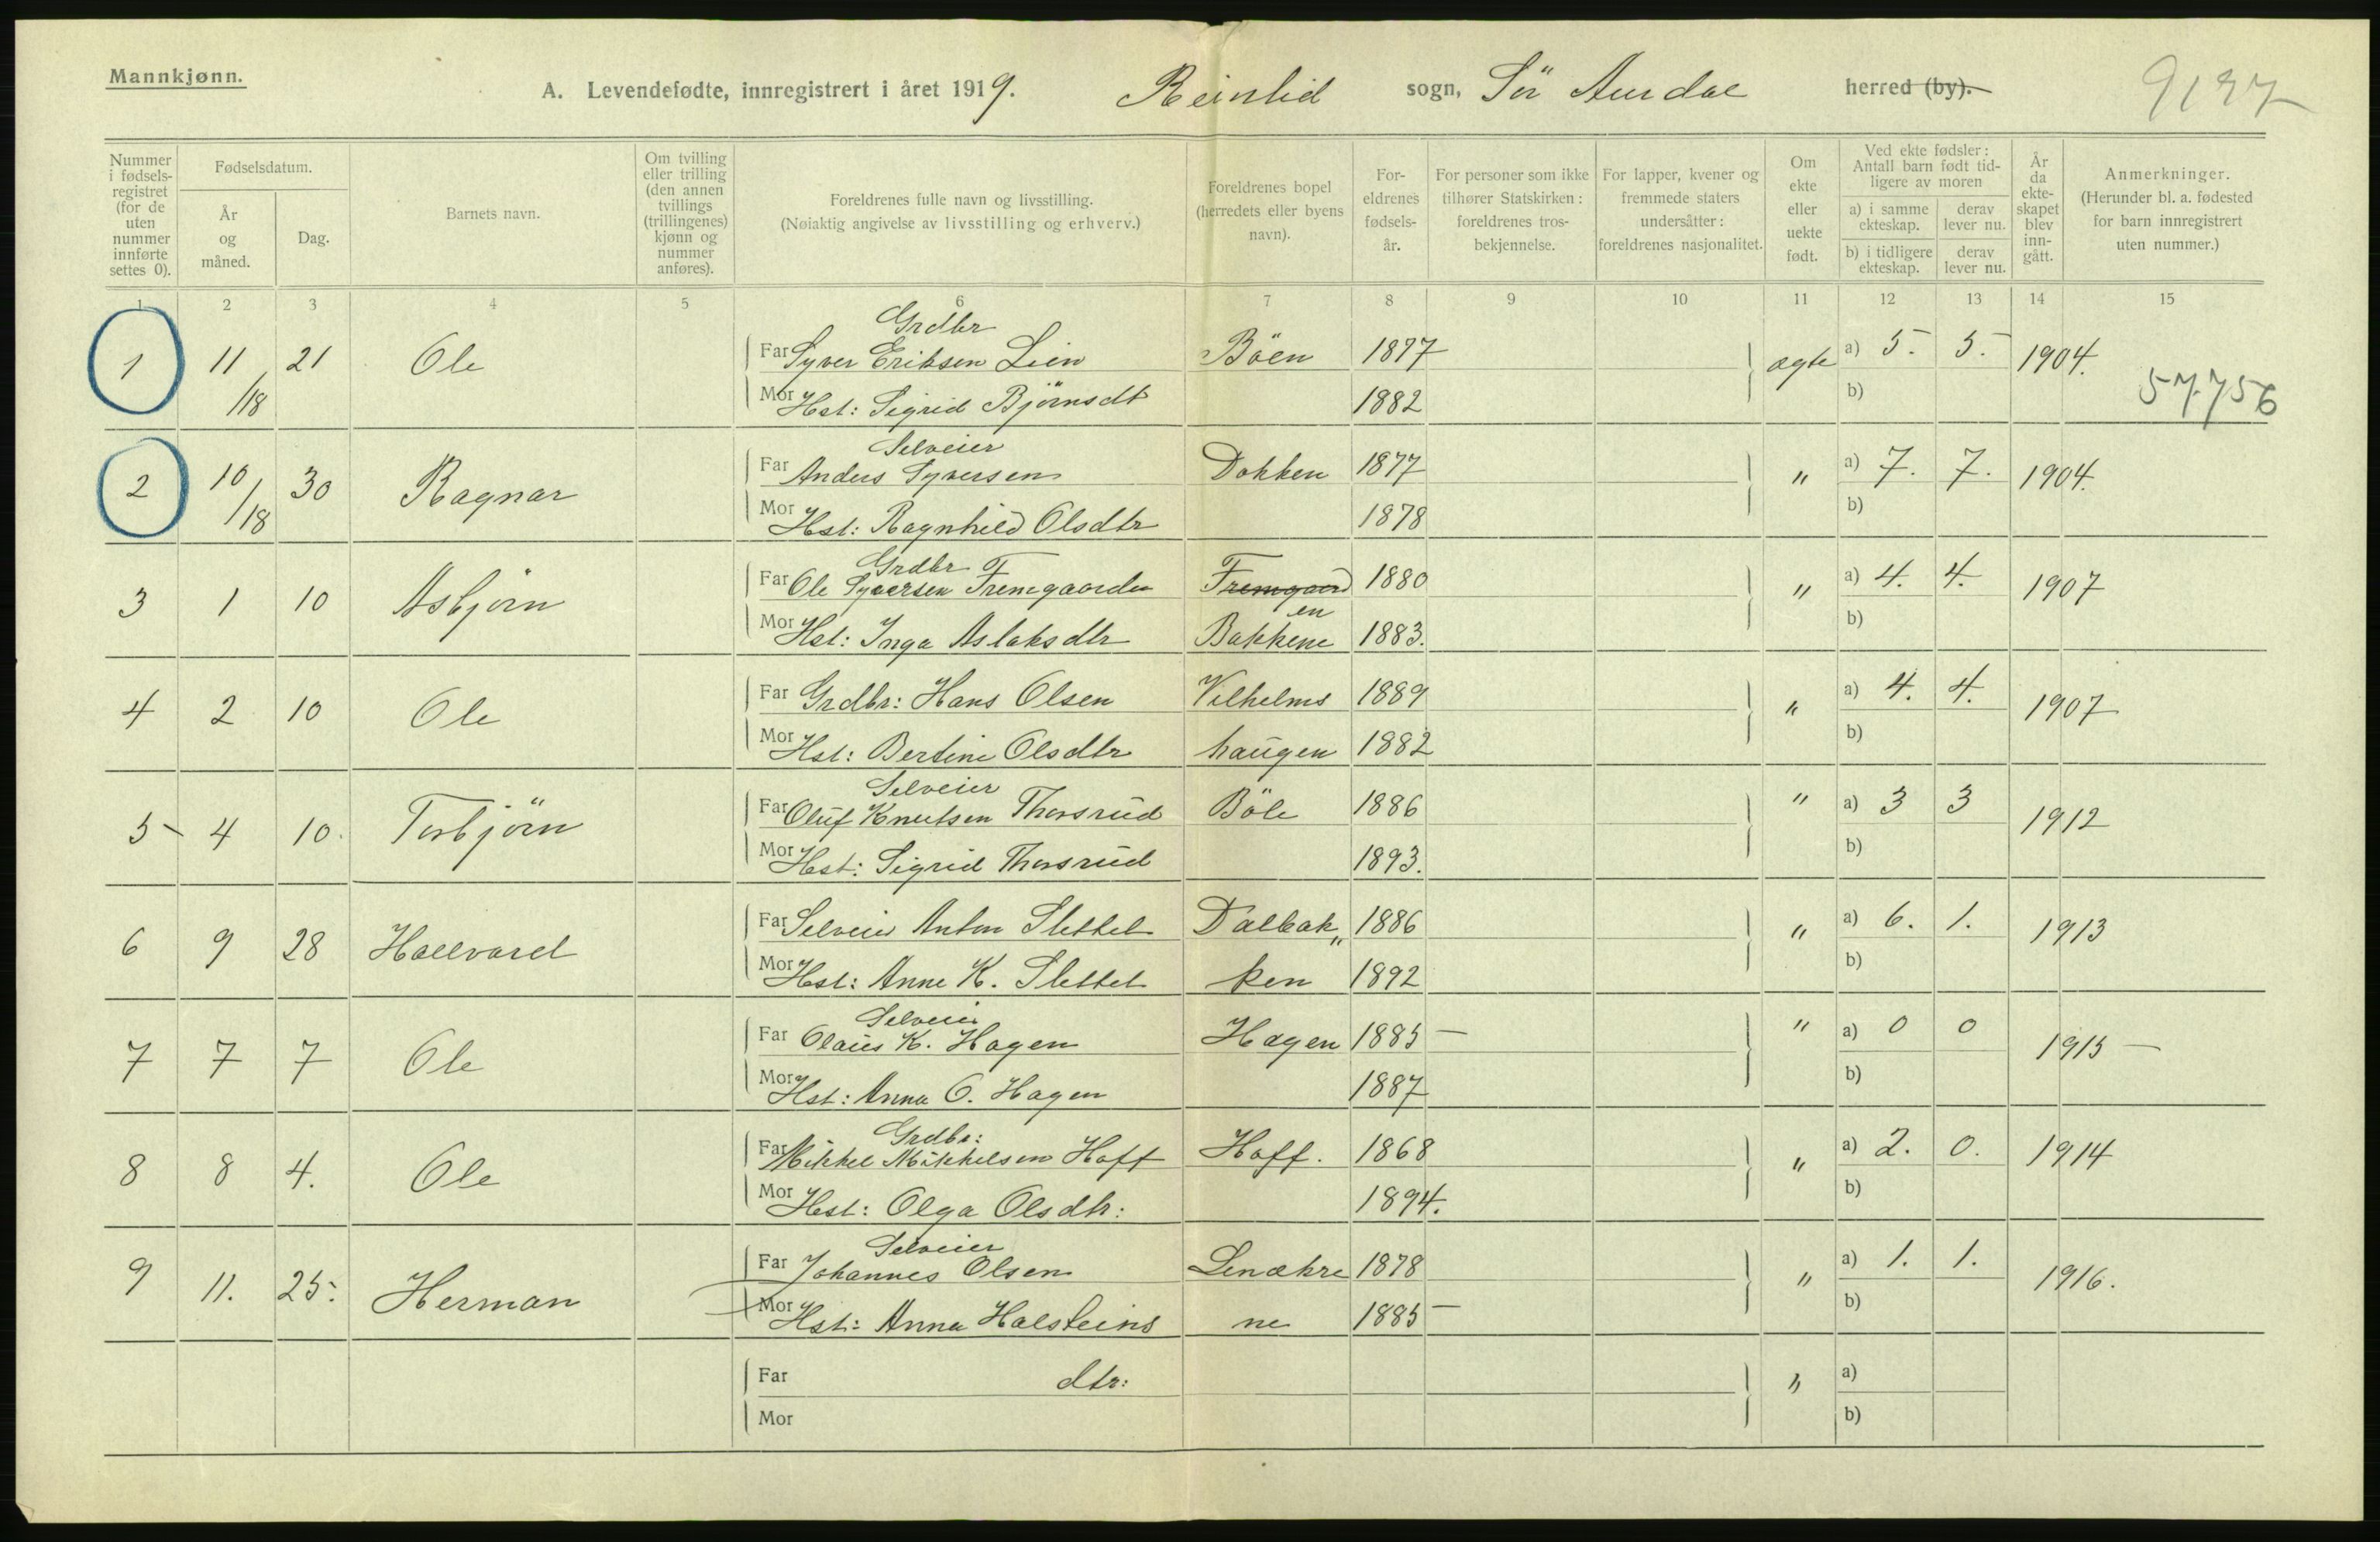 Mannkjønn.
A. Levendefødte, innregistrert i året 1919. Reinlid sogn, Sör Aurdal herred (by). 9137
Nummer i fødsels-registret (for de uten nummer innførte settes 0).
Fødselsdatum.
År og måned.
Dag.
Barnets navn.
Om tvilling eller trilling (den annen tvillings (trillingenes) kjønn og nummer anføres).
Foreldrenes fulle navn og livsstilling.
(Nøiaktig angivelse av livsstilling og erhverv.)
Foreldrenes bopel (herredets eller byens navn).
For-eldrenes fødsels-år.
For personer som ikke tilhører Statskirken: foreldrenes tros-bekjennelse.
For lapper, kvener og fremmede staters undersåtter: foreldrenes nasjonalitet.
Om ekte eller uekte født.
Ved ekte fødsler: Antall barn født tid-ligere av moren
a) i samme ekteskap. derav lever nu.
b) i tidligere ekteskap. derav lever nu.
År da ekte-skapet blev inn-gått.
Anmerkninger.
(Herunder bl. a. fødested for barn innregistrert uten nummer.)
1 2 3 4 5 6 7 8 9 10 11 12 13 14 15
Grdbr
1 11/18 21 Ole Far Syver Eriksen Lien Böen 1877 ægte a) 5. 5. 1904.
Mor Hst: Sigrid Björnsdt 1882 b) 57756
Selveier
2 10/18 30 Ragnar Far Anders Syversen Dokken 1877 " a) 7. 7. 1904.
Mor Hst: Ragnhild Olsdtr 1878 b)
Grdbr
3 1 10 Asbjörn Far Ole Syversen Fremgaarden Fremgaard 1880 " a) 4. 4. 1907
en
Mor Hst: Inga Aslaksdtr Bakkene 1883. b)
4 2 10 Ole Far Grdbr: Hans Olsen Vilhelms 1889 " a) 4. 4. 1907
Mor Hst: Bertine Olsdtr haugen 1882 b)
Selveier
5 4 10. Torbjörn Far Oluf Knutsen Thorsrud Böle 1886 " a) 3 3 1912
Mor Hst: Sigrid Thorsrud 1893. b)
6 9 28 Hallvard Far Selveier Anton Slettet Dalbak„ 1886 " a) 6. 1. 1913
Mor Hst: Anne K. Slettet ken 1892 b)
Selveier
7 7 7 Ole Far Olaus K. Hagen Hagen 1885 " a) 0 0 1915
Mor Hst: Anna O. Hagen 1887 b)
Grdbr:
8 8 4. Ole Far Mikkel Mikkelsen Hoff Hoff. 1868 " a) 2. 0. 1914
Mor Hst: Olga Olsdtr: 1894. b)
Selveier
9 11. 25. Herman Far Johannes Olsen Lenækre 1878 " a) 1. 1. 1916.
Mor Hst: Anna Halsteins ne 1885 b)
Far dtr: " a)
Mor b)